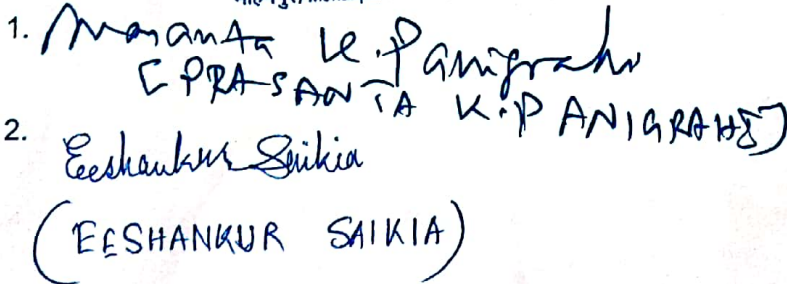 1. Prasanta K. Panigrahi
[PRASANTA K. PANIGRAHI]
2. Eeshankur Saikia
(EESHANKUR SAIKIA)